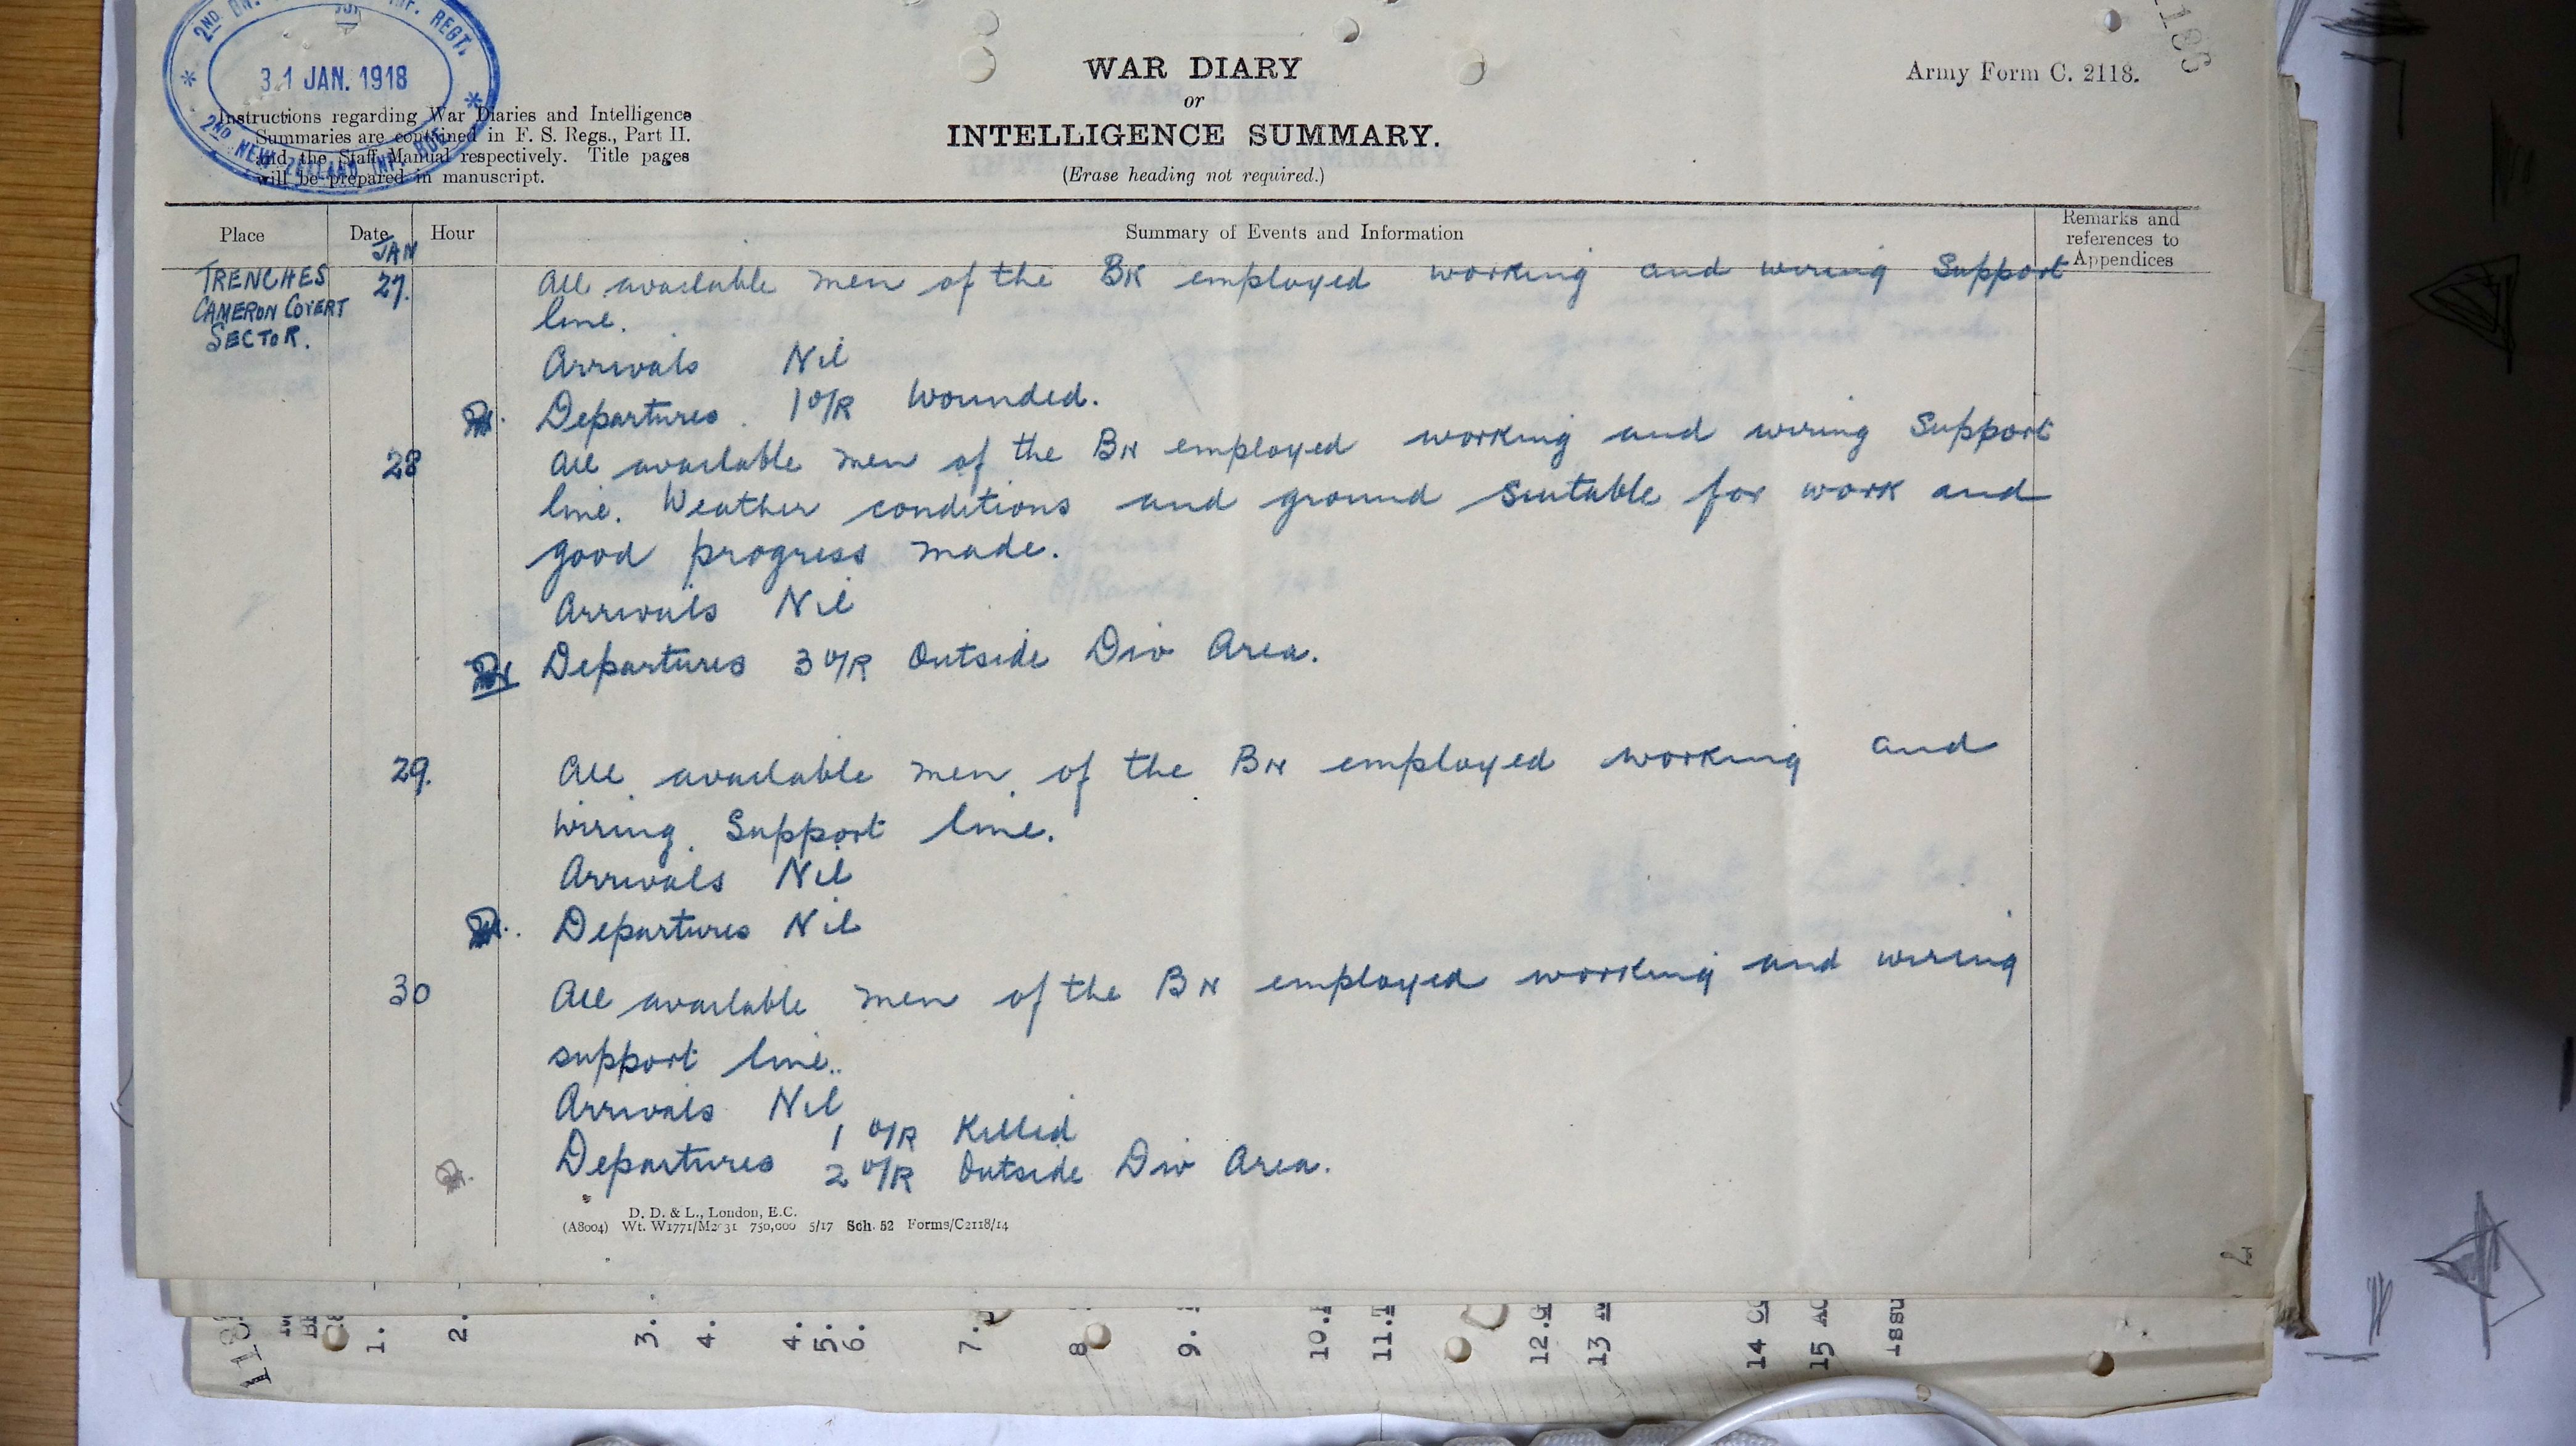 2ND BN. INF. REGT.
31 JAN. 1918
2ND NEW ZEALAND INF. BDE.
Instructions regarding War Diaries and Intelligence
Summaries are contained in F. S. Regs., Part II.
and the Staff Manual respectively. Title pages
will be prepared in manuscript.
WAR DIARY
or
INTELLIGENCE SUMMARY.
(Erase heading not required.)
Army Form C. 2118.
Place Date Hour Summary of Events and Information Remarks and references to Appendices
JAN
TRENCHES 27. All available men of the BN employed working and wiring Support
CAMERON COVERT line.
SECTOR.
Arrivals Nil
Departures. 1 O/R Wounded.
28 All available men of the BN employed working and wiring Support
line. Weather conditions and ground suitable for work and
good progress made.
Arrivals Nil
Departures 3 O/R Outside Div Area.
29. All available men of the BN employed working and
wiring Support line.
Arrivals Nil
Departures Nil
30 All available men of the BN employed working and wiring
support line.
Arrivals Nil
1 O/R Killed
Departures 2 O/R Outside Div Area.
D. D. & L., London, E.C.
(A8004) Wt. W1771/M2 31 750,000 5/17 Sch. 52 Forms/C2118/14
1. 2. 3. 4. 4. 5. 6. 7. 8 9. 10. 11. 12. 13 14 15